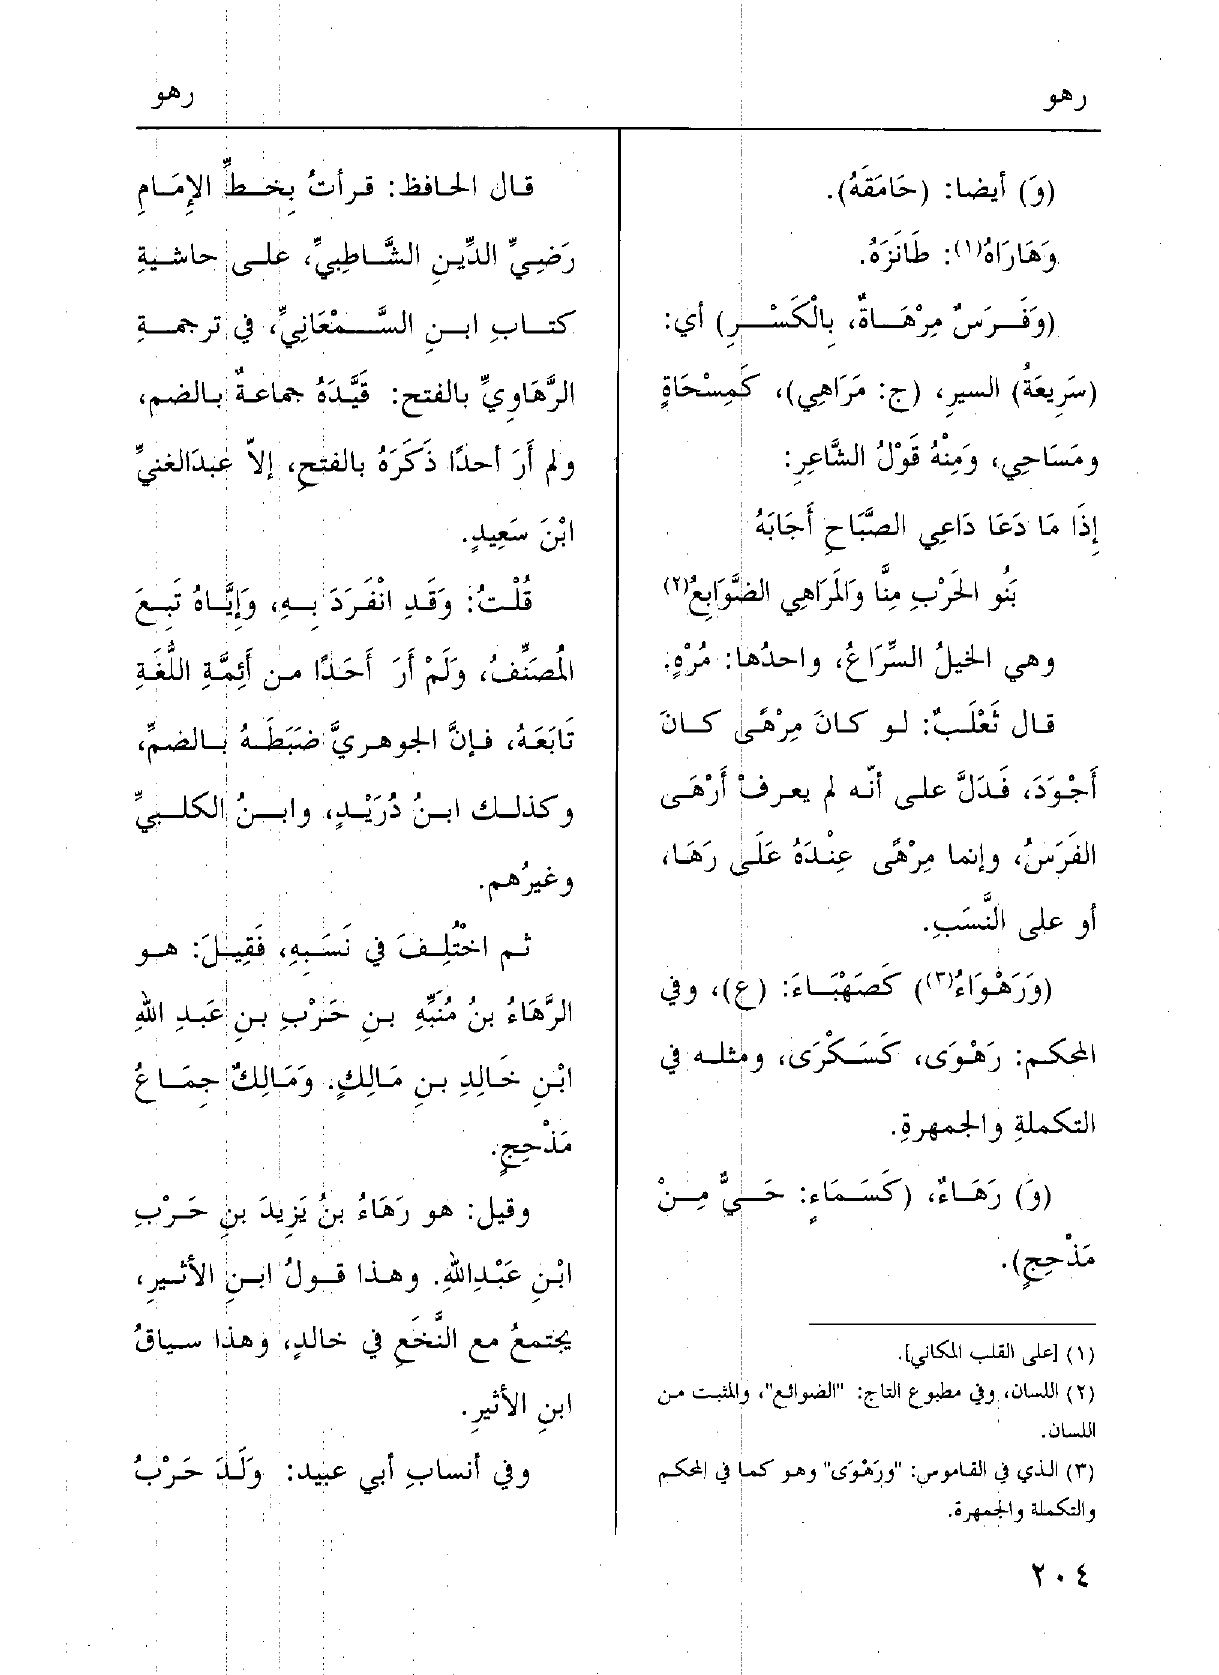 رهو
رهو
(وَ) أيضا: (حَامَقَهُ).
وَهَارَاهُ(١): طَانَزَهُ.
(وَفَرَسٌ مِرْهَاةٌ، بِالْكَسْرِ) أي:
(سَرِيعَةُ) السيرِ، (ج: مَرَاهِي)، كَمِسْحَاةٍ
ومَسَاحِي، وَمِنْهُ قَوْلُ الشَّاعِرِ:
إِذَا مَا دَعَا دَاعِي الصَّبَاحِ أَجَابَهُ
بَنُو الحَرْبِ مِنَّا وَالْمَرَاهِي الضَّوَابِعُ(٢)
وهي الخيلُ السِّرَاعُ، واحدُها: مُرْهٍ.
قال ثَعْلَبٌ: لو كانَ مِرْهًى كانَ
أَجْوَدَ، فَدَلَّ على أنّه لم يعرفْ أَرْهَى
الفَرَسُ، وإنما مِرْهًى عِنْدَهُ عَلَى رَهَا،
أو على النَّسَبِ.
(وَرَهْوَاءُ(٣)) كَصَهْبَاءَ: (ع)، وفي
المحكم: رَهْوَى، كَسَكْرَى، ومثله في
التكملةِ والجمهرةِ.
(وَ) رَهَاءٌ، (كَسَمَاءٍ: حَيٌّ مِنْ
مَذْحِجٍ).
(١) [على القلب المكاني].
(٢) اللسان، وفي مطبوع التاج: "الضوائع"، والمثبت من
اللسان.
(٣) الذي في القاموس: "ورَهْوَى" وهو كما في المحكم
والتكملة والجمهرة.
قال الحافظ: قرأتُ بِخطِّ الإِمَامِ
رَضِيِّ الدِّينِ الشَّاطِبيِّ، على حاشيةِ
كتابِ ابنِ السَّمْعَانِيِّ، في ترجمةِ
الرَّهَاوِيِّ بالفتح: قَيَّدَهُ جماعةٌ بالضم،
ولم أرَ أحدًا ذَكَرَهُ بالفتحِ، إلاّ عبدَالغنيِّ
ابْنَ سَعِيدٍ.
قُلْتُ: وَقَدِ انْفَرَدَ بِهِ، وَإِيَّاهُ تَبِعَ
المُصَنِّفُ، وَلَمْ أَرَ أَحَدًا من أَئِمَّةِ اللُّغَةِ
تَابَعَهُ، فإنَّ الجوهريَّ ضَبَطَهُ بالضمِّ،
وكذلك ابنُ دُرَيْدٍ، وابنُ الكلبيِّ
وغيرُهم.
ثم اخْتُلِفَ في نَسَبِهِ، فَقِيلَ: هو
الرَّهَاءُ بنُ مُنَبِّهِ بنِ حَرْبِ بنِ عَبدِ اللهِ
ابْنِ خَالِدِ بنِ مَالِكٍ. وَمَالِكٌ جِمَاعُ
مَذْحِجٍ.
وقيل: هو رَهَاءُ بنُ يَزِيدَ بنِ حَرْبِ
ابْنِ عَبْدِاللهِ. وهذا قولُ ابنِ الأثيرِ،
يجتمعُ مع النَّخَعِ في خالدٍ، وهذا سياقُ
ابنِ الأثيرِ.
وفي أنسابِ أبي عبيد: وَلَدَ حَرْبُ
٢٠٤